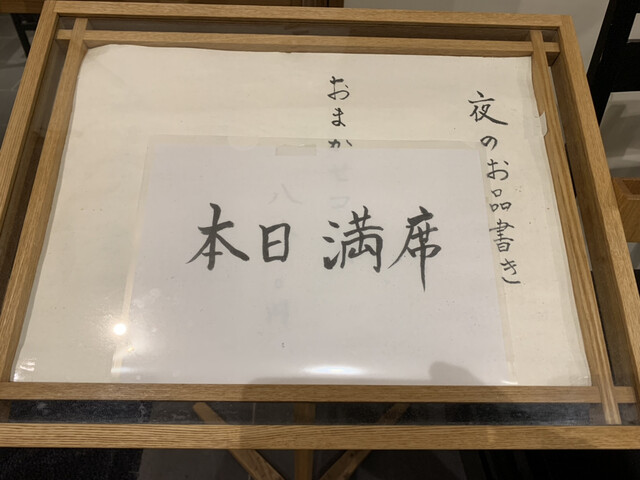 夜のお品書き
おまか
本日満席